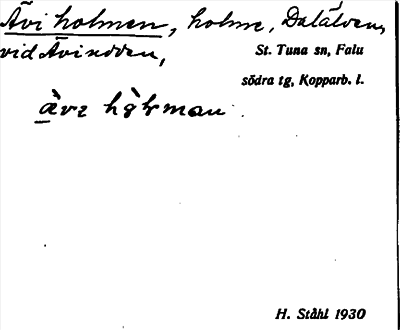 Ävi holmen, holme, Dalälven,
vid Ävinoven,
St. Tuna sn, Falu
södra tg, Kopparb. l.
H. Ståhl 1930